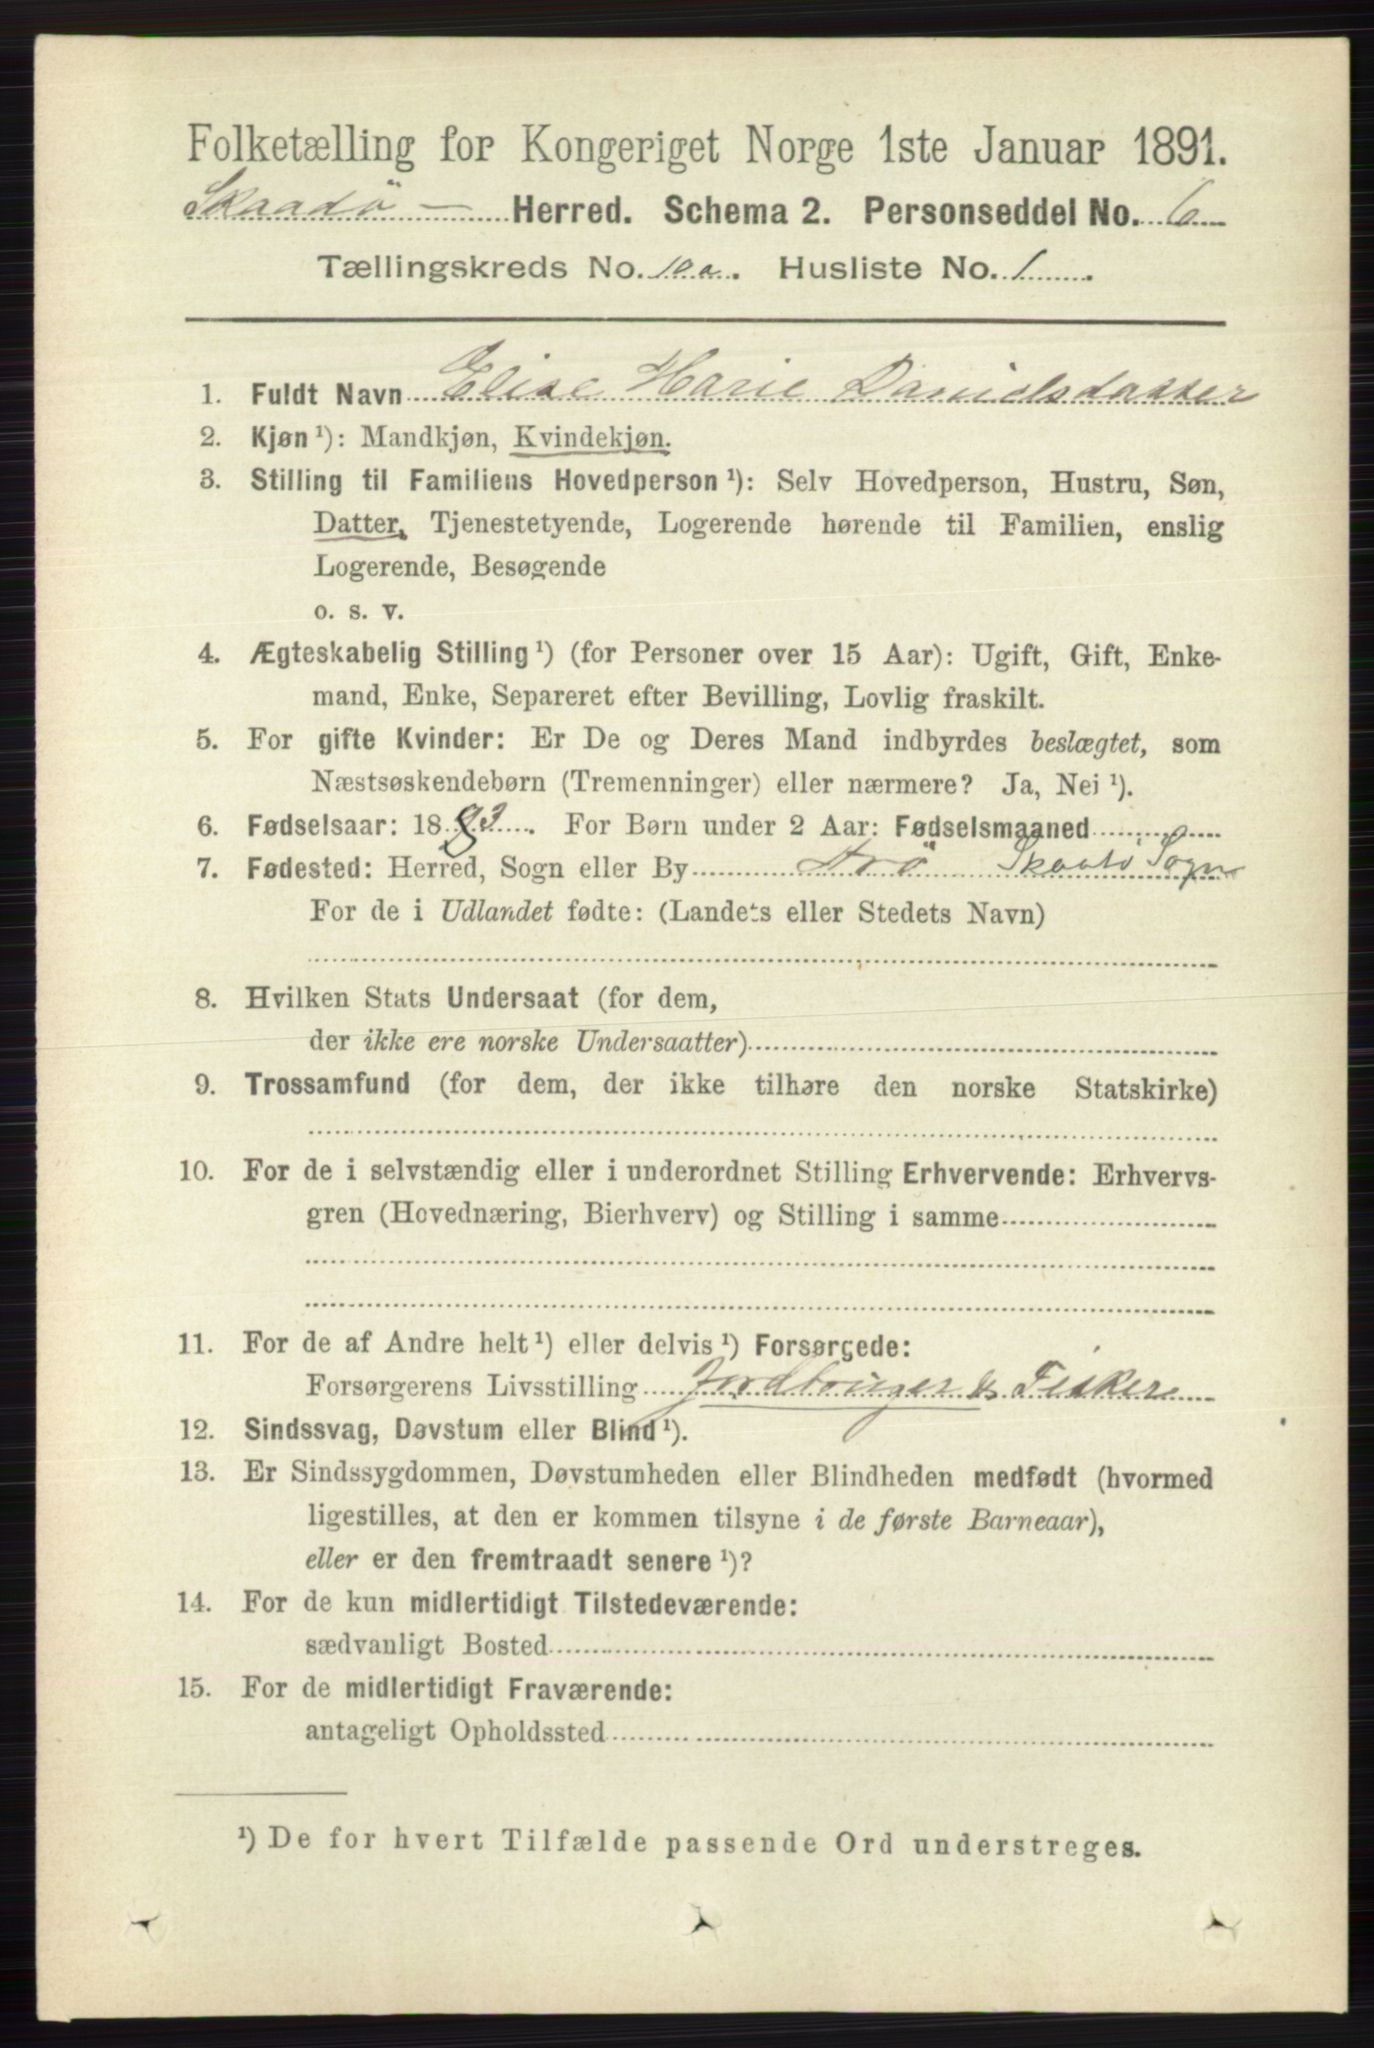 Folketælling for Kongeriget Norge 1ste Januar 1891.
Skaadø — Herred. Schema 2. Personseddel No. 6
Tællingskreds No. 10a. Husliste No. 1
1. Fuldt Navn Elise Marie Danielsdatter
2. Kjøn ¹): Mandkjøn, Kvindekjøn.
3. Stilling til Familiens Hovedperson ¹): Selv Hovedperson, Hustru, Søn,
Datter, Tjenestetyende, Logerende hørende til Familien, enslig
Logerende, Besøgende
o. s. v.
4. Ægteskabelig Stilling ¹) (for Personer over 15 Aar): Ugift, Gift, Enke-
mand, Enke, Separeret efter Bevilling, Lovlig fraskilt.
5. For gifte Kvinder: Er De og Deres Mand indbyrdes beslægtet, som
Næstsøskendebørn (Tremenninger) eller nærmere? Ja, Nei ¹).
6. Fødselsaar: 1883. For Børn under 2 Aar: Fødselsmaaned
7. Fødested: Herred, Sogn eller By Arø Skaatö Sogn
For de i Udlandet fødte: (Landets eller Stedets Navn)
8. Hvilken Stats Undersaat (for dem,
der ikke ere norske Undersaatter)
9. Trossamfund (for dem, der ikke tilhøre den norske Statskirke)
10. For de i selvstændig eller i underordnet Stilling Erhvervende: Erhvervs-
gren (Hovednæring, Bierhverv) og Stilling i samme
11. For de af Andre helt ¹) eller delvis ¹) Forsørgede:
Forsørgerens Livsstilling Jordbruger & Fisker
12. Sindssvag, Døvstum eller Blind ¹).
13. Er Sindssygdommen, Døvstumheden eller Blindheden medfødt (hvormed
ligestilles, at den er kommen tilsyne i de første Barneaar),
eller er den fremtraadt senere ¹)?
14. For de kun midlertidigt Tilstedeværende:
sædvanligt Bosted
15. For de midlertidigt Fraværende:
antageligt Opholdssted
¹) De for hvert Tilfælde passende Ord understreges.